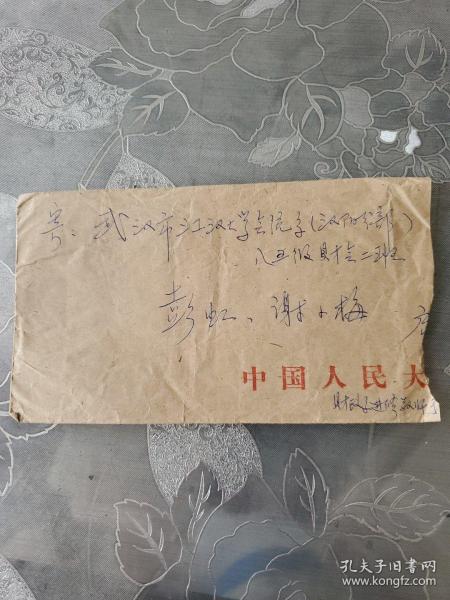 寄：武汉市江汉大学会统系（汉阳分部）
八五级财会二班
彭虹、谢小梅
中国人民大
财政系进修教师
孔夫子旧书网
www.kongfz.com